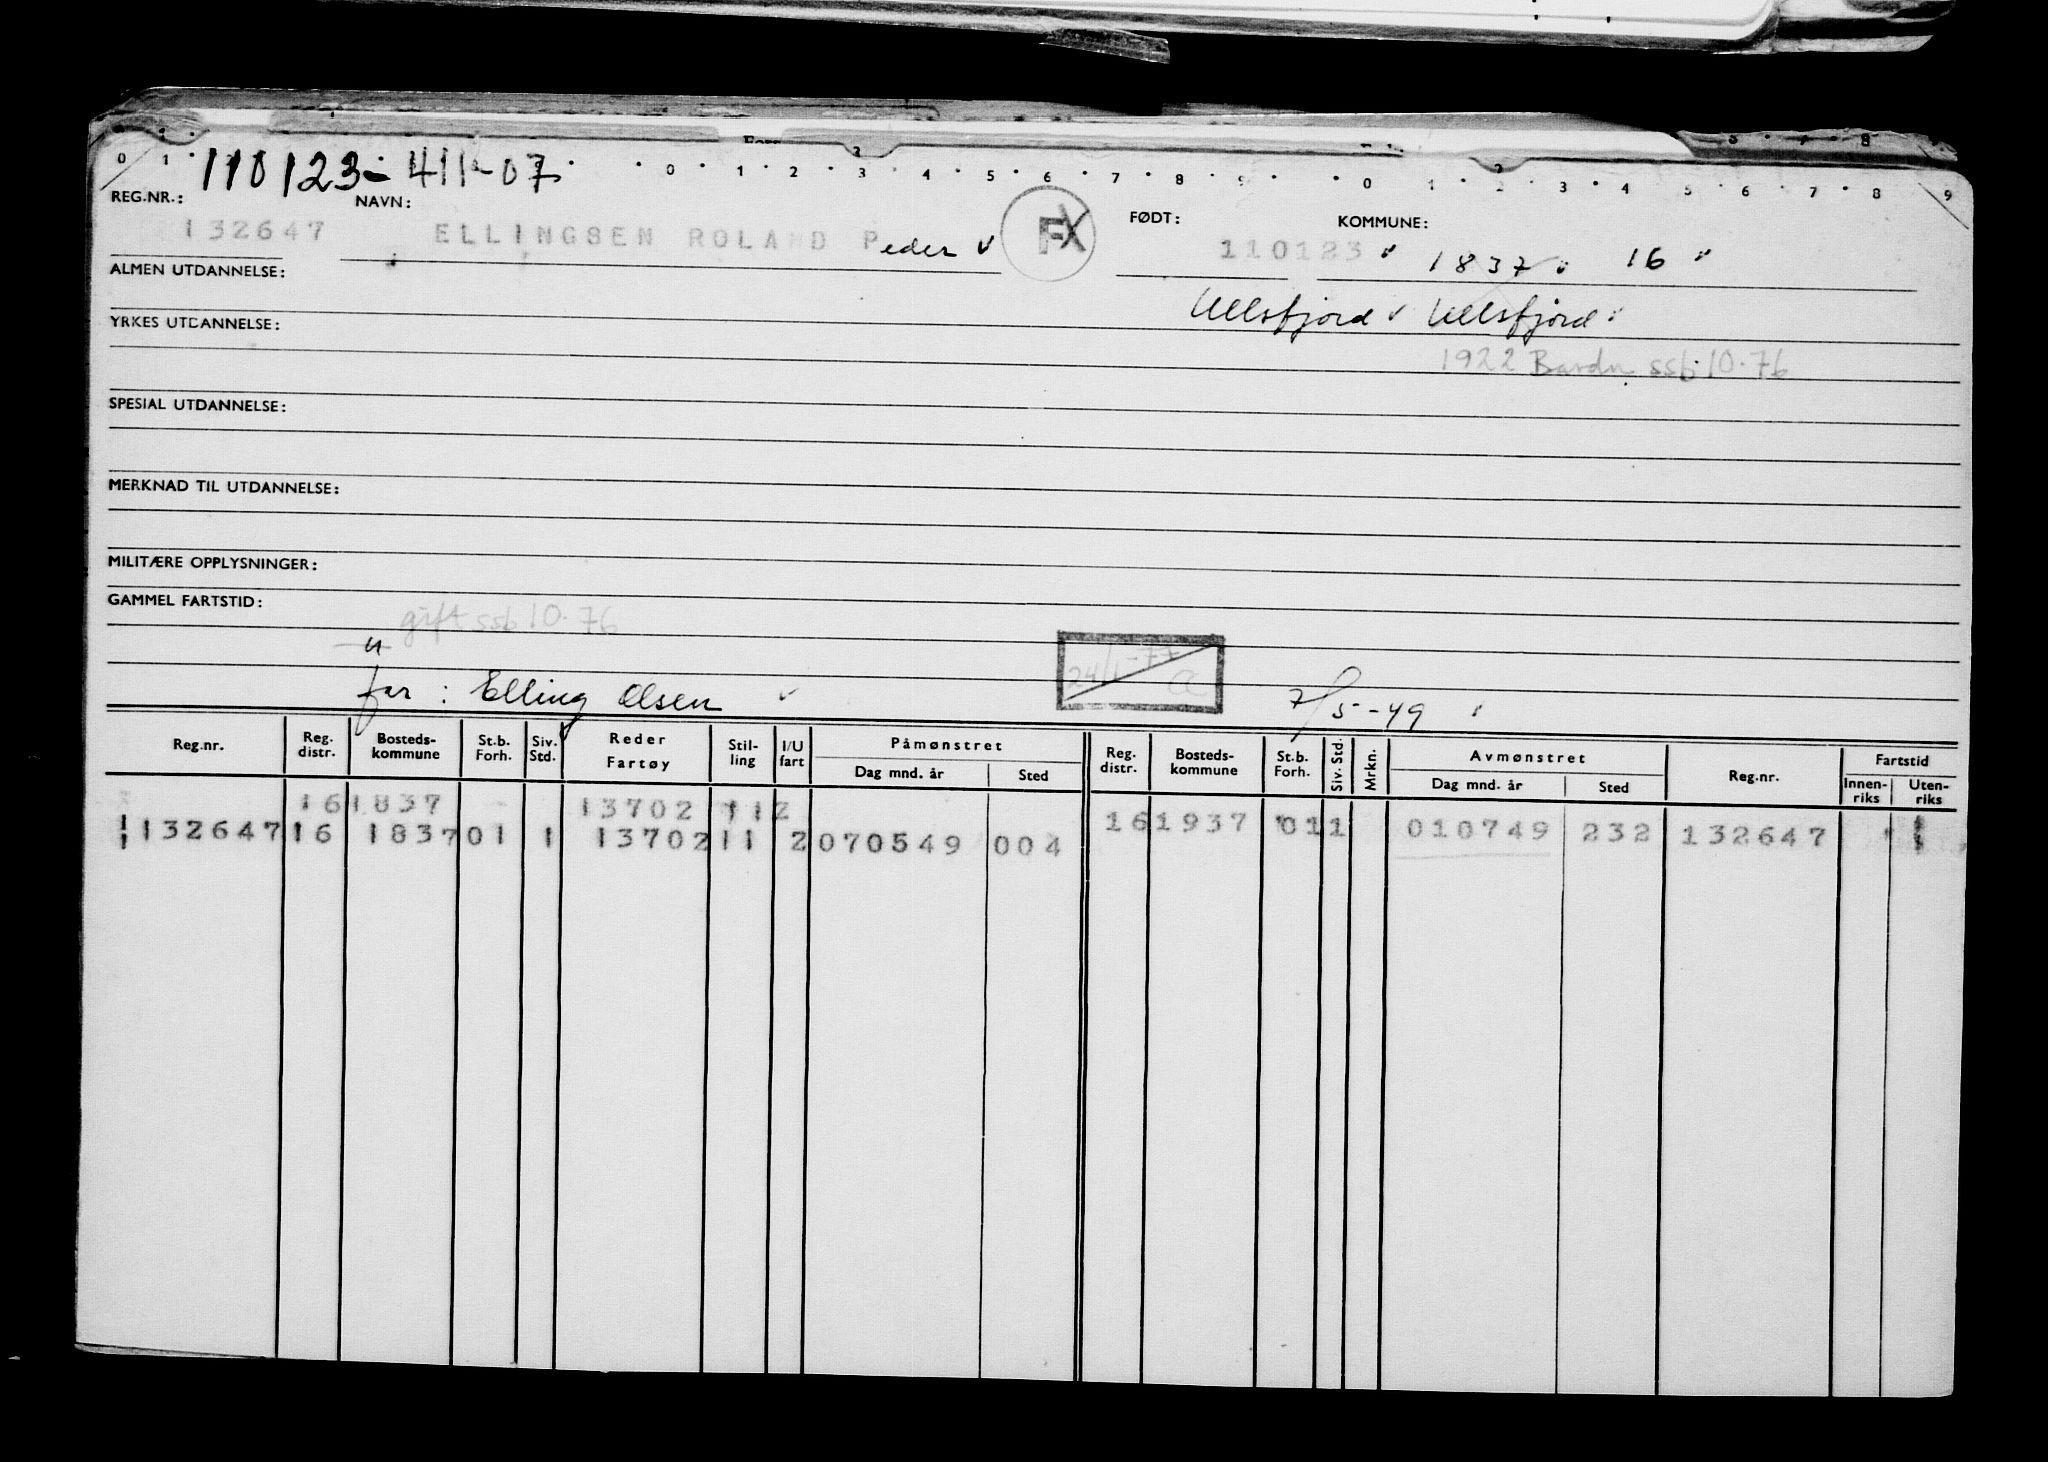 0 1 110123-411-07 0 1 2 3 4 5 6 7 8 9 0 1 2 3 4 5 6 7 8 9
REG.NR.: NAVN: FØDT: KOMMUNE:
132647 ELLINGSEN ROLAND Peder FX 110123 1837 16
ALMEN UTDANNELSE:
Ullsfjord Ullsfjord
YRKES UTDANNELSE:
1922 Bardu ssb 10.76
SPESIAL UTDANNELSE:
MERKNAD TIL UTDANNELSE:
MILITÆRE OPPLYSNINGER:
GAMMEL FARTSTID:
gift ssb 10.76
u
24/1-77 a
far : Elling Olsen 7/5-49
Reg.nr. Reg. distr. Bosteds-kommune St.b. Forh. Siv. Std. Reder Fartøy Stil-ling I/U fart Påmønstret Dag mnd. år Sted Reg. distr. Bosteds-kommune St.b. Forh. Siv. Std. Mrkn. Avmønstret Dag mnd. år Sted Reg.nr. Fartstid Innen-riks Uten-riks
161837 13702 112
132647 16 1837 01 1 13702 11 2 070549 004 16 1937 01 1 010749 232 132647 1